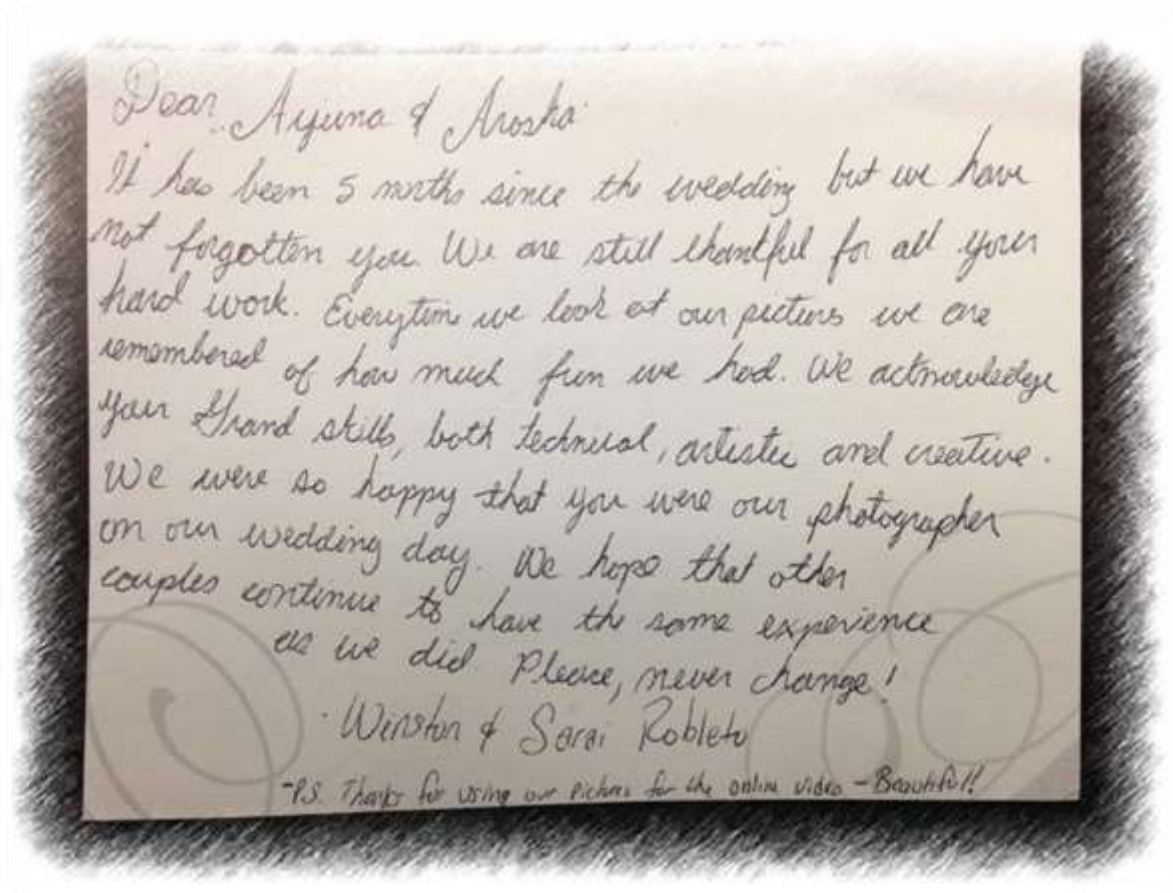 Dear Ayuna & Arosha
It has been 5 months since the wedding but we have
not forgotten you. We are still thankful for all your
hard work. Everytime we look at our pictures we are
remembered of how much fun we had. We acknowledge
your Grand skills, both technical, artistic and creative.
We were so happy that you were our photographer
on our wedding day. We hope that other
couples continue to have the same experience
as we did. Please, never change!
Winston & Sarai Robleto
-P.S. Thanks for using our pictures for the online video - Beautiful!